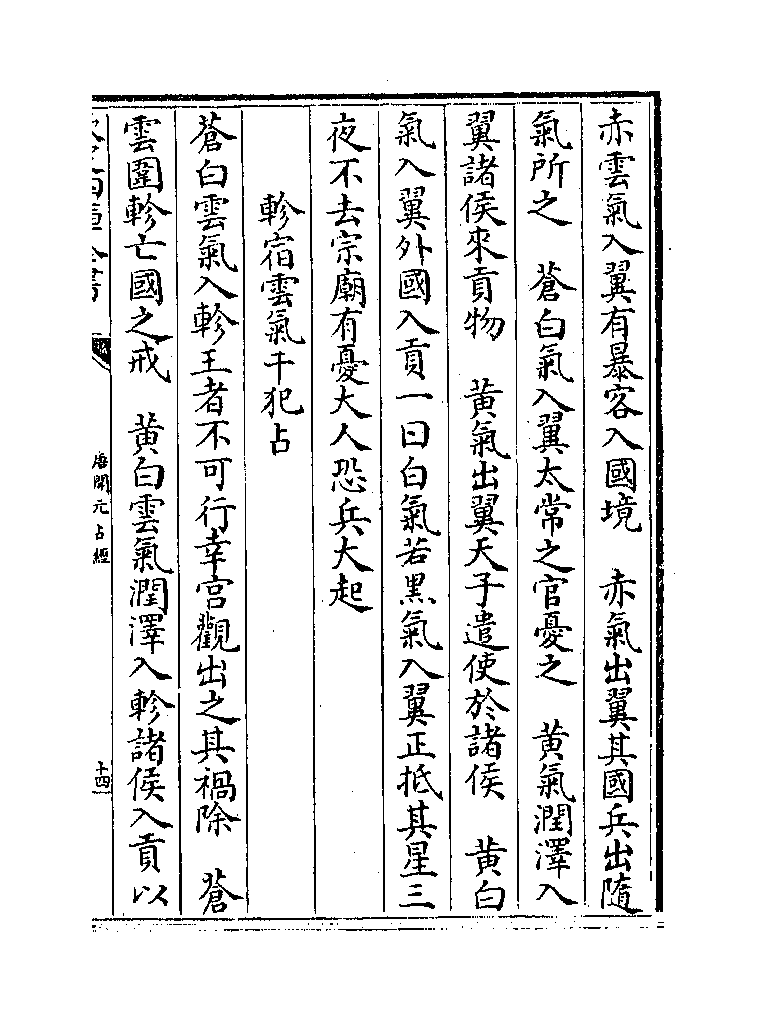 赤雲氣入翼有暴客入國境　赤氣出翼其國兵出隨
氣所之　蒼白氣入翼太常之官憂之　黄氣潤澤入
翼諸侯來貢物　黄氣出翼天子遣使於諸侯　黄白
氣入翼外國入貢一曰白氣若黑氣入翼正抵其星三
夜不去宗廟有憂大人恐兵大起
軫宿雲氣干犯占
蒼白雲氣入軫王者不可行幸宫觀出之其禍除　蒼
雲圍軫亡國之戒　黄白雲氣潤澤入軫諸侯入貢以
唐開元占經
十四